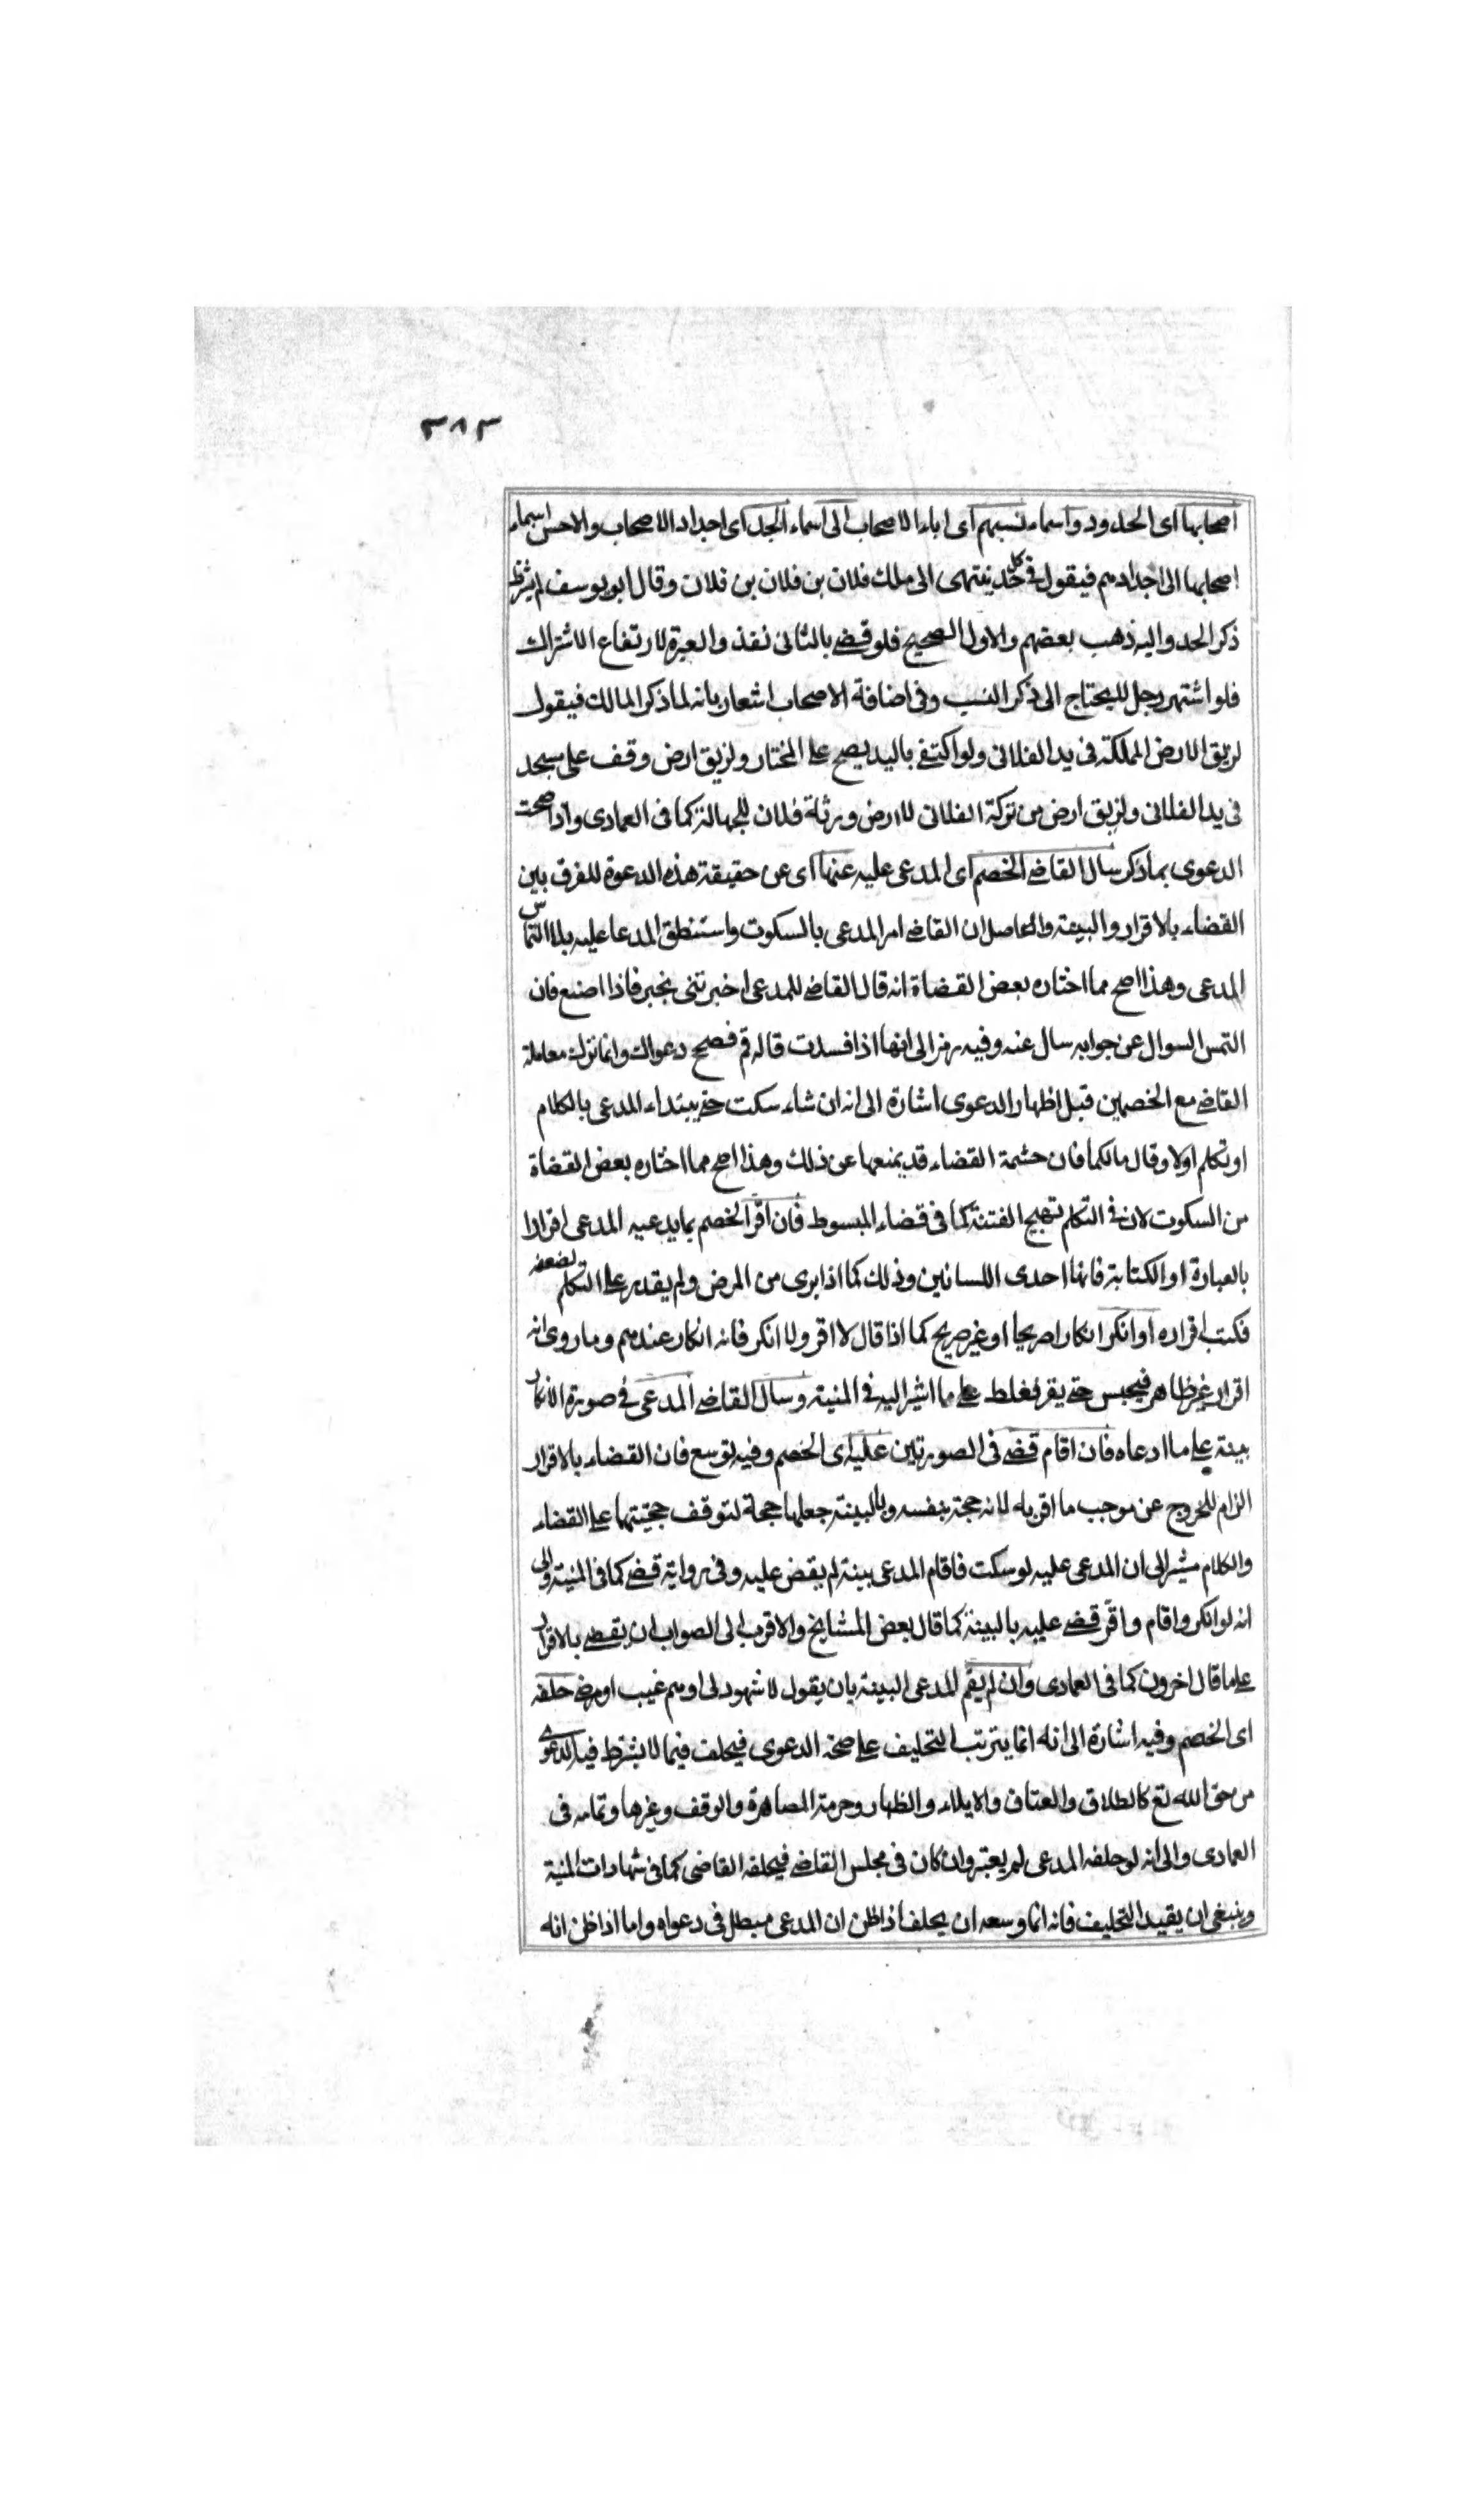 ٣٨٣
اصحابها اى الحدود واسماء نسبهم اى اباء الاصحاب الى اسماء الجد اى اجداد الاصحاب والاحسن اسماء
اصحابها الى اجدادهم فيقول فى كل حد ينتهى الى ملك فلان بن فلان بن فلان وقال ابو يوسف لم يشترط
ذكر الحد واليه ذهب بعضهم والاول الصحيح فلو قضى بالثانى نفذ والعبرة لارتفاع الاشتراك
فلو اشتهر رجل لا يحتاج الى ذكر النسب وفى اضافة الاصحاب اشعار بانه لما ذكر المالك فيقول
لزيق الارض المملكة فى يد الفلانى ولو اكتفى باليد يصح على المختار ولزيق ارض وقف على مسجد
فى يد الفلانى ولزيق ارض من تركة الفلانى لا ارض ورثة فلان للجهالة كما فى العمادى واذا صحت
الدعوى بما ذكر سال القاضى الخصم اى المدعى عليه عنها اى عن حقيقة هذه الدعوة للفرق بين
القضاء بالاقرار والبينة والحاصل ان القاضى امر المدعى بالسكوت واستنطق المدعا عليه بلا التماس
المدعى وهذا اصح مما اختاره بعض القضاة انه قال القاضى للمدعى اخبرتنى بخبر فاذا اصنع فان
التمس السوال عن جوابه سال عنه وفيه رمز الى انها اذا فسدت قال له قم فصحح دعواك وانما ترك معاملة
القاضى مع الخصمين قبل اظهار الدعوى اشارة الى انه ان شاء سكت حتى يبتداء المدعى بالكلام
او تكلم اولا وقال مالكما فان حشمة القضاء قد يمنعها عن ذلك وهذا اصح مما اختاره بعض القضاة
من السكوت لان فى التكلم تهيج الفتنة كما فى قضاء المبسوط فان اقر الخصم بما يدعيه المدعى اقرارا
بالعبارة او الكتابة فانها احدى اللسانين وذلك كما اذا برى من المرض ولم يقدر على التكلم لضعفه
فكتب اقراره او انكر انكارا صريحا او غير صريح كما اذا قال لا اقر ولا انكر فانه انكار عندهم وما روى انه
اقرار غير ظاهر فيحبس حتى يقر فغلط على ما اشير اليه فى المنية وسال القاضى المدعى فى صورة الانكار
بينة على ما ادعاه فان اقام قضى فى الصورتين عليه اى الخصم وفيه توسع فان القضاء بالاقرار
الزام للخروج عن موجب ما اقر به لانه حجة بنفسه وبالبينة جعلها حجة لتوقف حجيتها على القضاء
والكلام مشير الى ان المدعى عليه لو سكت فاقام المدعى بينة لم يقض عليه وفى رواية قضى كما فى المنية والى
انه لو انكر واقام واقر قضى عليه بالبينة كما قال بعض المشايخ والاقرب الى الصواب ان يقضى بالاقرار
على ما قال اخرون كما فى العمادى وان لم يقم المدعى البينة بان يقول لا شهود لى او هم غيب او مرضى حلفه
اى الخصم وفيه اشارة الى انه انما يترتب التحليف على صحة الدعوى فيحلف فيما لا يشترط فيه الدعوى
من حق الله تع كالطلاق والعتاق والايلاء والظهار وحرمة المصاهرة والوقف وغيرها وتمامه فى
العمادى والى انه لو حلفه المدعى لم يعتبر وان كان فى مجلس القاضى فيحلفه القاضى كما فى شهادات المنية
وينبغى ان يقيد التحليف فانه انما وسعه ان يحلف اذا ظن ان المدعى مبطل فى دعواه واما اذا ظن انه